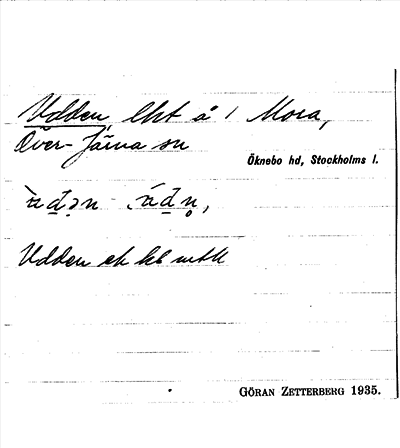 Udden, lht å 1 Mora,
Över-Järna sn
Öknebo hd, Stockholms l.
Udden ek kb mtk
GÖRAN ZETTERBERG 1935.